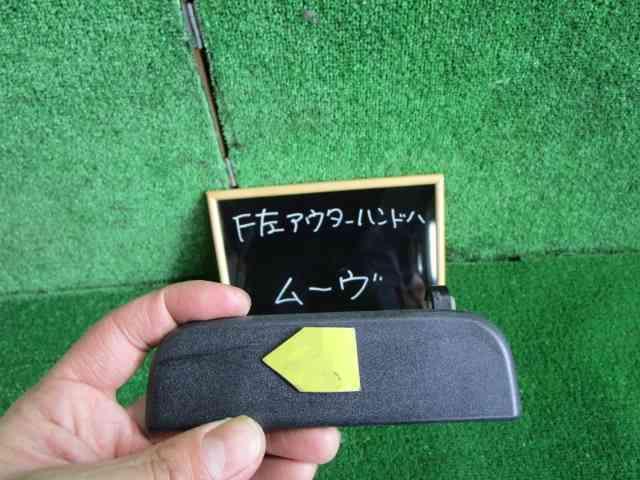 F左アウターハンドハ
ムーヴ